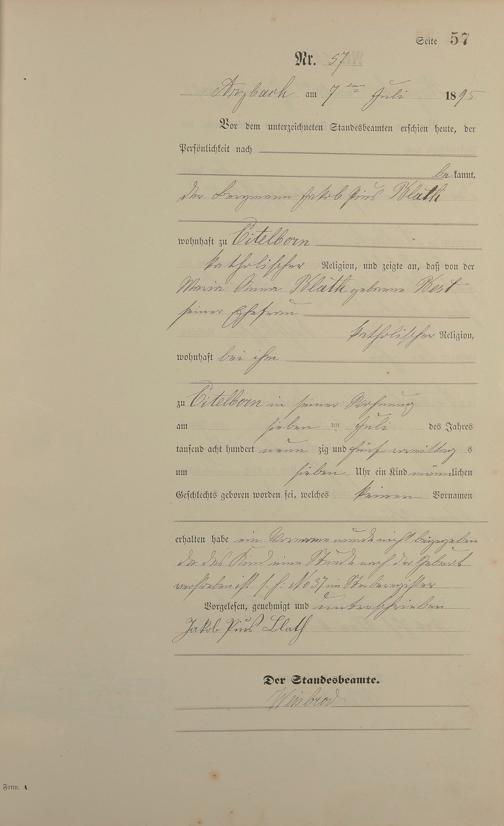 Seite 57
Nr. 57
Arzbach am 7ten Juli 1895
Vor dem unterzeichneten Standesbeamten erschien heute, der
Persönlichkeit nach
bekannt,
der Bergmann Jakob Pius Kläth
wohnhaft zu Eitelborn
katholischer Religion, und zeigte an, daß von der
Maria Anna Kläth geborene Best
seiner Ehefrau
katholischer Religion,
wohnhaft bei ihm
zu Eitelborn in seiner Wohnung
am sieben ten Juli des Jahres
tausend acht hundert neun zig und fünf vormittags
um sieben Uhr ein Kind männlichen
Geschlechts geboren worden sei, welches keinen Vornamen
erhalten habe ein Vorname wurde nicht beigegeben
da das Kind eine Stunde nach der Geburt
verstorben ist s. h. No 37 im Sterberegister
Vorgelesen, genehmigt und unterschrieben
Jakob Pius
Der Standesbeamte.
Form. A